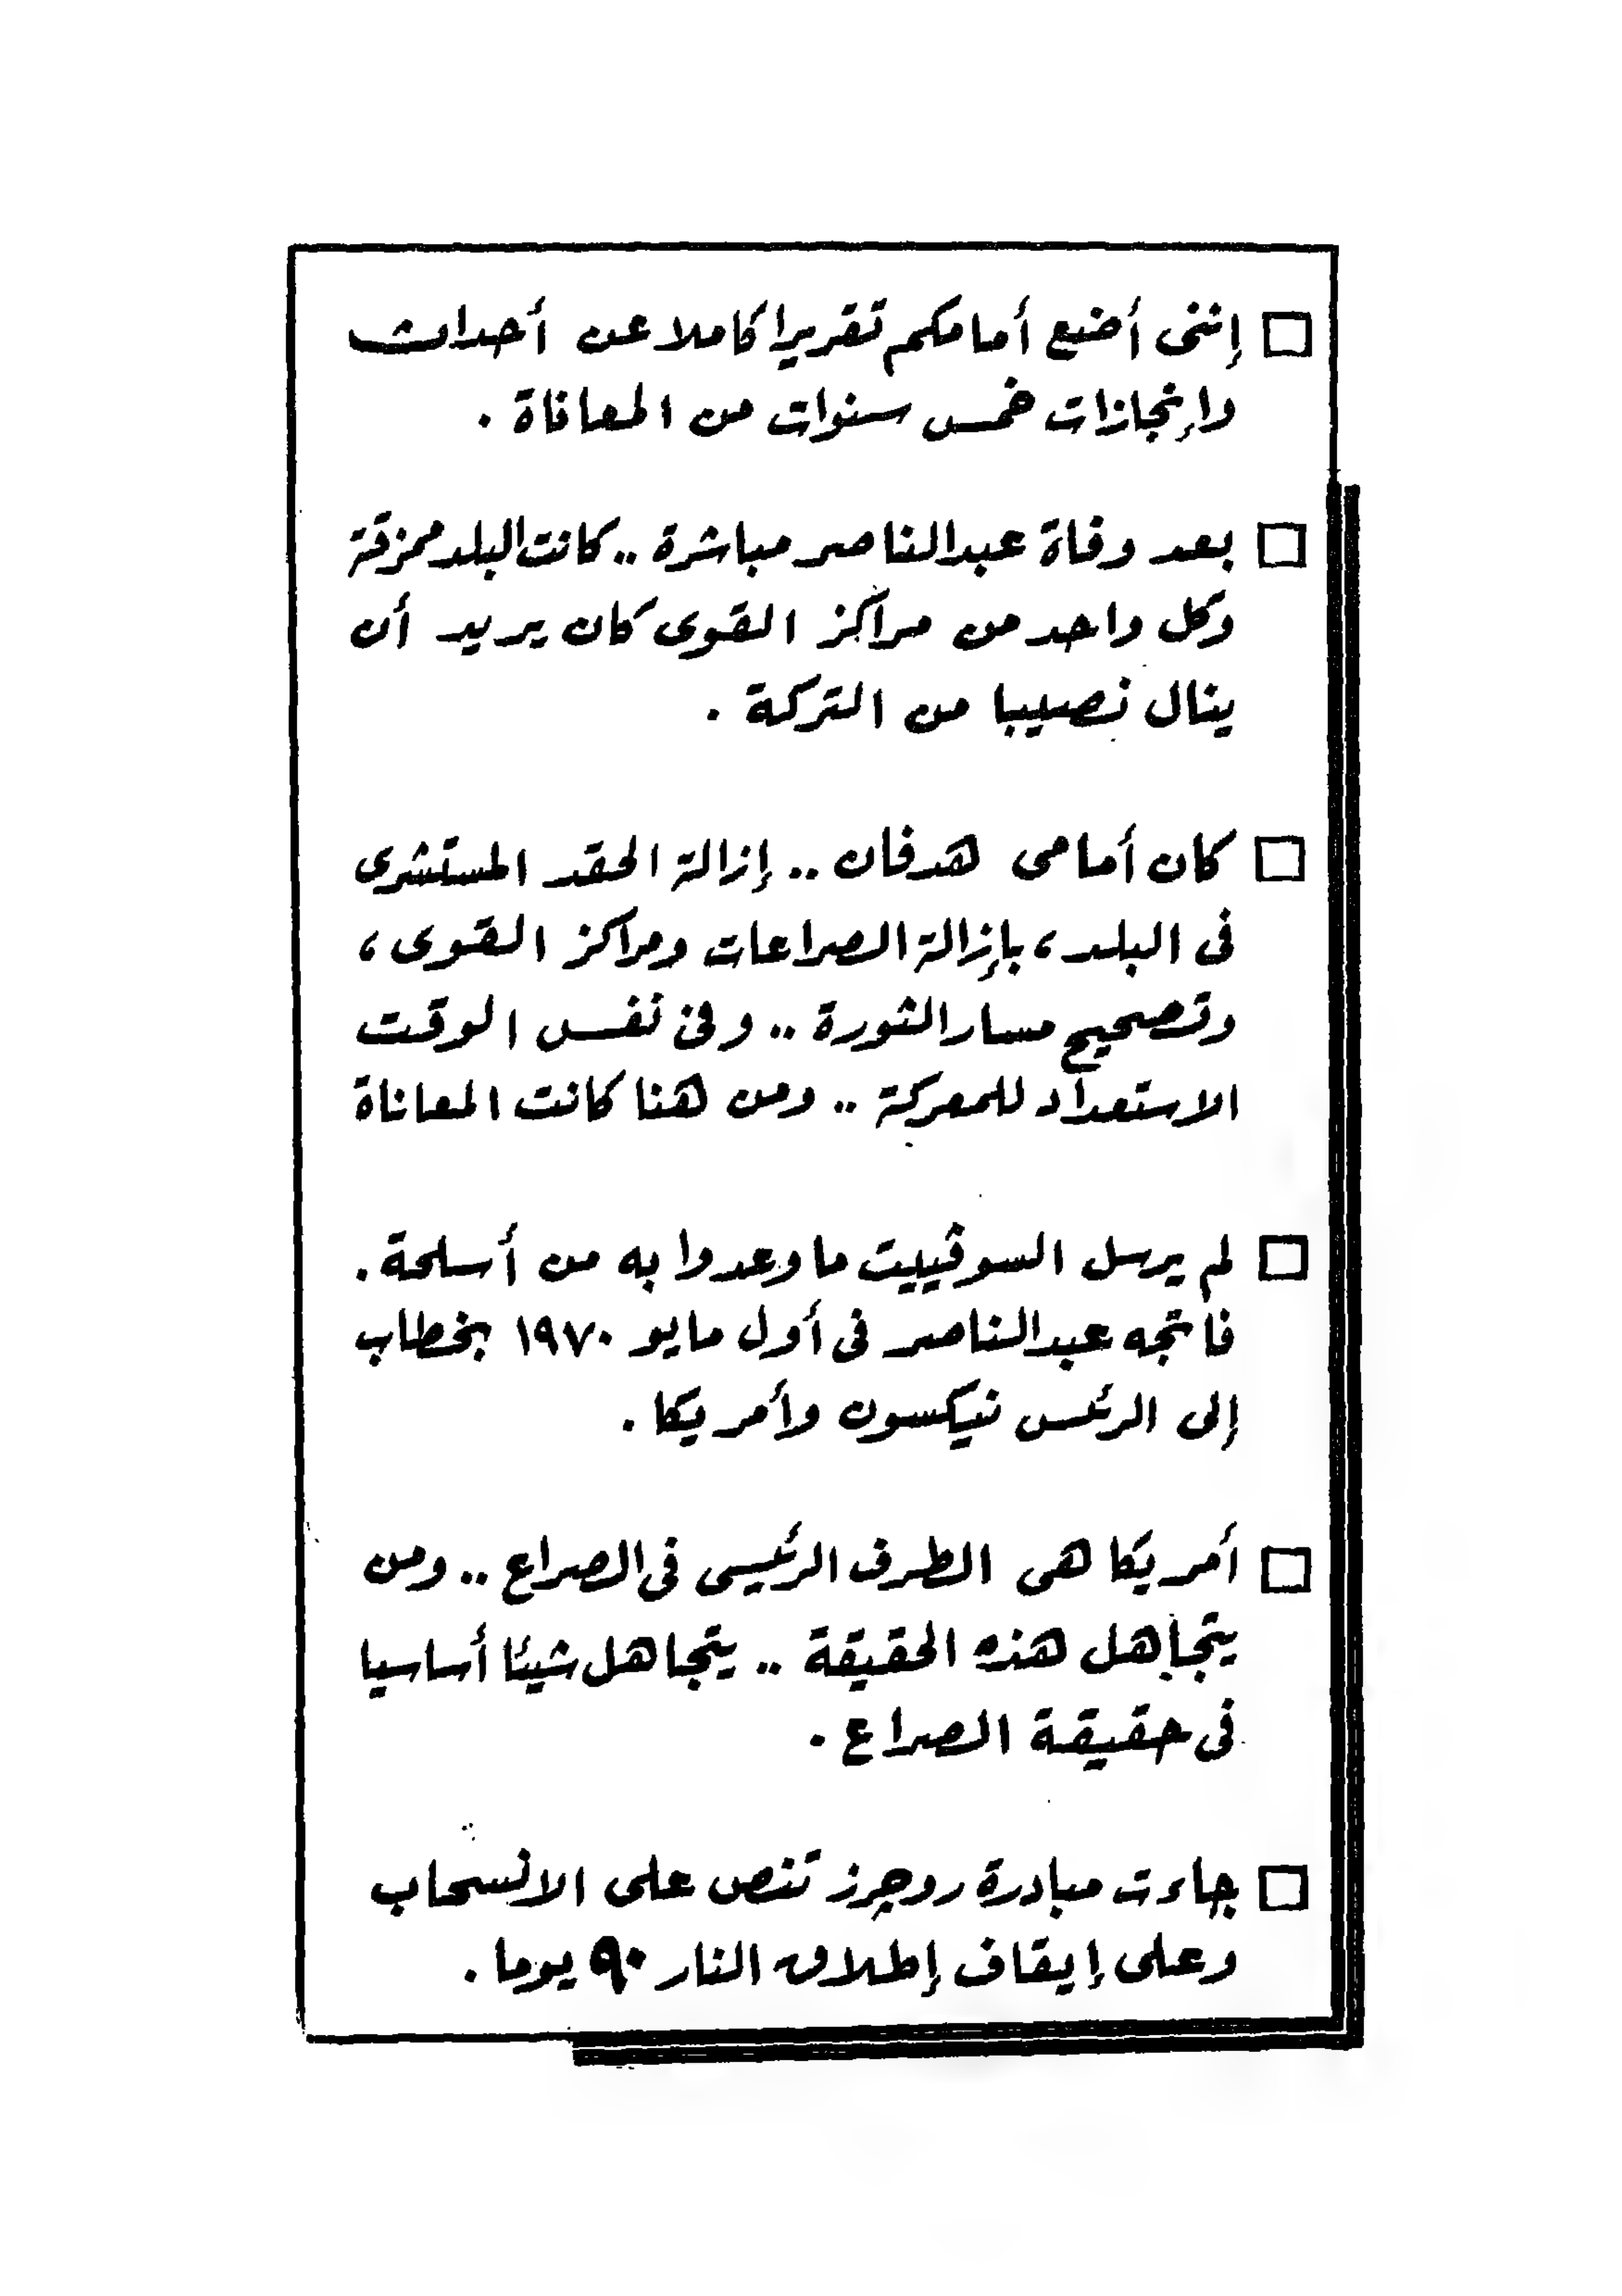 □ إننى أضع أمامكم تقريرا كاملا عن أحداث
وإنجازات خمس سنوات من المعاناة .
□ بعد وفاة عبدالناصر مباشرة .. كانت البلد ممزقة
وكل واحد من مراكز القوى كان يريد أن
ينال نصيبا من التركة .
□ كان أمامى هدفان .. إزالة الحقد المستشرى
فى البلد ، بإزالة الصراعات ومراكز القوى ،
وتصحيح مسار الثورة .. وفى نفس الوقت
الاستعداد للمعركة .. ومن هنا كانت المعاناة
□ لم يرسل السوڤييت ما وعدوا به من أسلحة .
فاتجه عبدالناصر فى أول مايو ١٩٧٠ بخطاب
إلى الرئيس نيكسون وأمريكا .
□ أمريكا هى الطرف الرئيسى فى الصراع .. ومن
يتجاهل هذه الحقيقة .. يتجاهل شيئا أساسيا
فى حقيقة الصراع .
□ جاءت مبادرة روچرز تنص على الانسحاب
وعلى إيقاف إطلاق النار ٩٠ يوما .